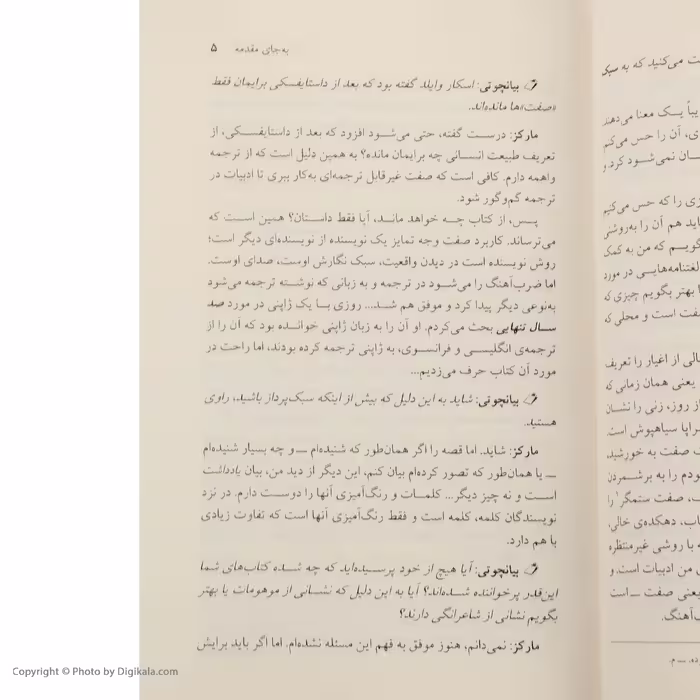 به‌جای مقدمه ۵
بیانچوتی: اسکار وایلد گفته بود که بعد از داستایفسکی برایمان فقط
«صفت»ها مانده‌اند.
مارکز: درست گفته، حتی می‌شود افزود که بعد از داستایفسکی، از
تعریف طبیعت انسانی چه برایمان مانده؟ به همین دلیل است که از ترجمه
واهمه دارم. کافی است که صفت غیرقابل ترجمه‌ای به‌کار ببری تا ادبیات در
ترجمه گم‌وگور شود.
پس، از کتاب چه خواهد ماند، آیا فقط داستان؟ همین است که
می‌ترساند. کاربرد صفت وجه تمایز یک نویسنده از نویسنده‌ای دیگر است؛
روش نویسنده است در دیدن واقعیت، سبک نگارش اوست، صدای اوست.
اما ضرب‌آهنگ را می‌شود در ترجمه و به زبانی که نوشته ترجمه می‌شود
به‌نوعی دیگر پیدا کرد و موفق هم شد... روزی با یک ژاپنی در مورد صد
سال تنهایی بحث می‌کردم. او آن را به زبان ژاپنی خوانده بود که آن را از
ترجمه‌ی انگلیسی و فرانسوی، به ژاپنی ترجمه کرده بودند، اما راحت در
مورد آن کتاب حرف می‌زدیم...
بیانچوتی: شاید به این دلیل که بیش از اینکه سبک‌پرداز باشید، راوی
هستید.
مارکز: شاید. اما قصه را اگر همان‌طور که شنیده‌ام ــ و چه بسیار شنیده‌ام
ــ یا همان‌طور که تصور کرده‌ام بیان کنم، این دیگر از دید من، بیان یادداشت
است و نه چیز دیگر... کلمات و رنگ‌آمیزی آنها را دوست دارم. در نزد
نویسندگان کلمه، کلمه است و فقط رنگ‌آمیزی آنها است که تفاوت زیادی
با هم دارد.
بیانچوتی: آیا هیچ از خود پرسیده‌اید که چه شده کتاب‌های شما
این‌قدر پرخواننده شده‌اند؟ آیا به این دلیل که نشانی از موهومات یا بهتر
بگویم نشانی از شاعرانگی دارند؟
مارکز: نمی‌دانم، هنوز موفق به فهم این مسئله نشده‌ام. اما اگر باید برایش
ت می‌کنید که به سبک
یباً یک معنا می‌دهند
ی، آن را حس می‌کم
ـان نمی‌شود کرد. و
زی را که حس می‌کنیم
اید هم آن را به‌روشنی
گویم که من به کمک
لغتنامه‌هایی در مورد
ا بهتر بگویم چیزی که
صفت است و محلی که
الی از اغیار را تعریف
یعنی همان زمانی که
از روز، زنی را نشان
سراپا سیاهپوش است.
ت صفت به خورشید،
ودم را به برشمردن
ب، صفت ستمگر را
اب، دهکده‌ی خالی،
ه با روشی غیرمنتظره
ی من ادبیات است. و
یعنی صفت ــ است
ب‌آهنگ.
ده. ــ م.
Copyright © Photo by Digikala.com